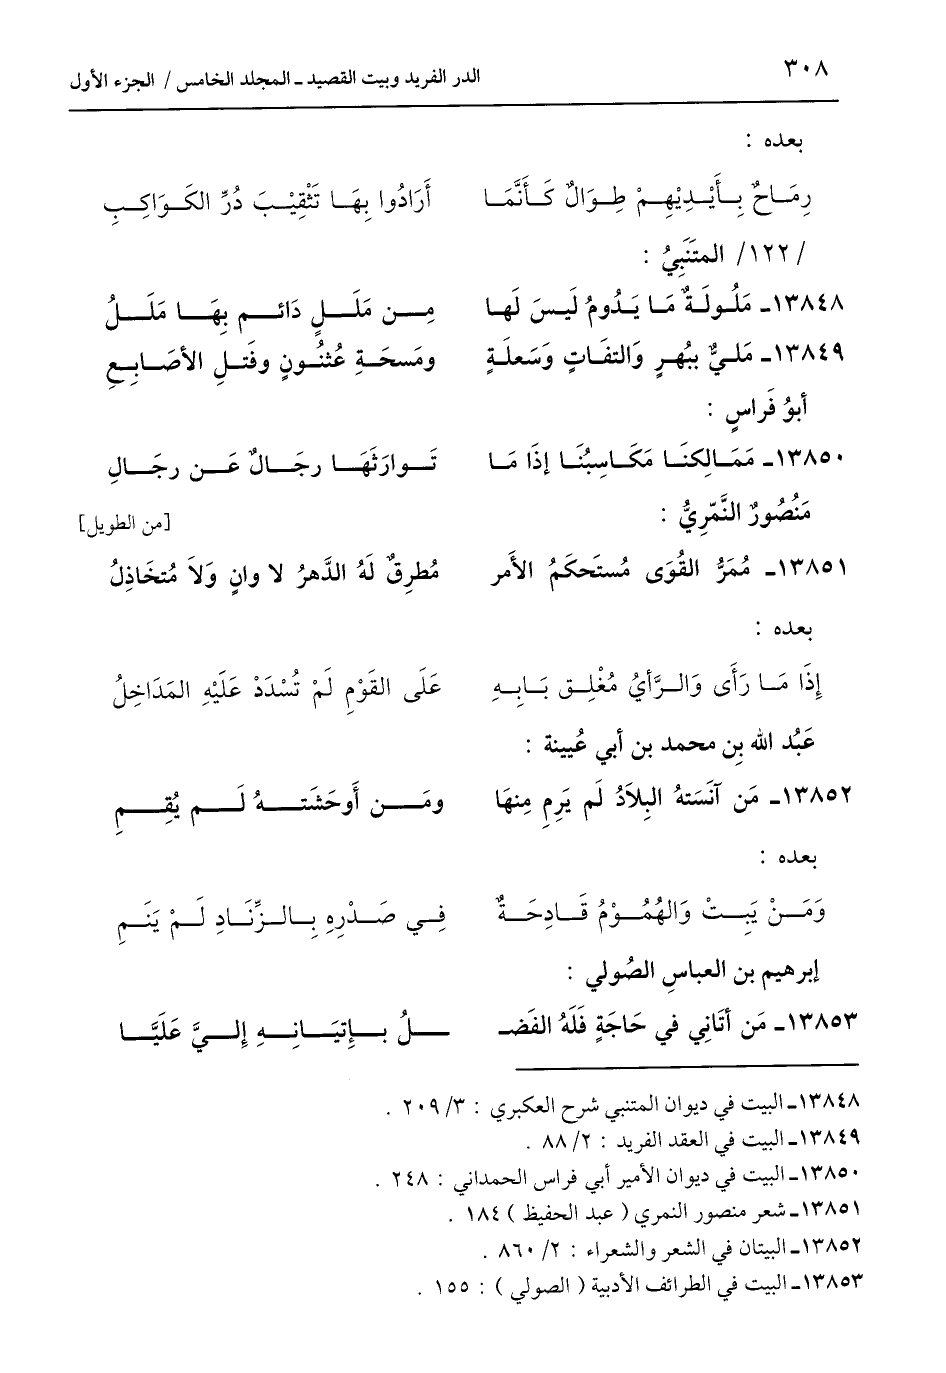 ٣٠٨
الدر الفريد وبيت القصيد ـ المجلد الخامس / الجزء الأول
بعده :
رِمَاحٌ بِأَيْدِيْهِمْ طِوَالٌ كَأَنَّمَا أَرَادُوا بِهَا تَثْقِيْبَ دُرِّ الكَوَاكِبِ
/١٢٢/ المتَنَبِيُ :
١٣٨٤٨ـ مَلُولَةٌ مَا يَدُومُ لَيسَ لَها مِن مَلَلٍ دَائم بِهَا مَلَلُ
١٣٨٤٩ـ مَليٌّ ببُهرٍ وَالتفَاتٍ وَسَعلَةٍ ومَسحَةِ عُثنُونٍ وفَتلِ الأصَابِعِ
أبوُ فَراسٍ :
١٣٨٥٠ـ مَمَالِكنَا مَكَاسِبُنَا إذَا مَا تَوارَثَهَا رجَالٌ عَن رجَالِ
مَنُصُورٌ النَّمّرِيُّ : [من الطويل]
١٣٨٥١ـ مُمَرُّ القُوَى مُستَحكَمُ الأَمر مُطرِقٌ لَهُ الدَّهرُ لا وانٍ وَلاَ مُتخَاذِلُ
بعده :
إِذَا مَا رَأَى وَالرَّأيُ مُغْلِق بَابِهِ عَلَى القَوْمِ لَمْ تُسْدَدْ عَلَيْهِ المَدَاخِلُ
عَبُد الله بِن محمد بن أبي عُيينة :
١٣٨٥٢ـ مَن آنَسَتهُ البِلاَدُ لَم يَرِمِ مِنهَا ومَن أَوحَشَتهُ لَم يُقِمِ
بعده :
وَمَنْ يَبِتْ وَالهُمُوْمُ قَادِحَةٌ فِي صَدْرِهِ بِالزِّنَادِ لَمْ يَنَمِ
إبرهيم بن العباسِ الصُولي :
١٣٨٥٣ـ مَن أتَانِي في حَاجَةٍ فَلَهُ الفَضـ ـلُ بإِتيَانِهِ إليَّ عَلَيَّا
١٣٨٤٨ـ البيت في ديوان المتنبي شرح العكبري : ٣/ ٢٠٩ .
١٣٨٤٩ـ البيت في العقد الفريد : ٢/ ٨٨ .
١٣٨٥٠ـ البيت في ديوان الأمير أبي فراس الحمداني : ٢٤٨ .
١٣٨٥١ـ شعر منصور النمري ( عبد الحفيظ ) ١٨٤ .
١٣٨٥٢ـ البيتان في الشعر والشعراء : ٢/ ٨٦٠ .
١٣٨٥٣ـ البيت في الطرائف الأدبية ( الصولي ) : ١٥٥ .